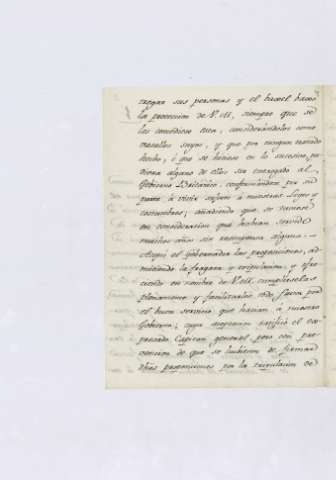 tregar sus personas y el buque bajo
la proteccion de V.M., siempre que se
les concediese esta, considerandolos como
vasallos suyos, y que por ningun tratado
hecho, ó que se hiciese en lo sucesivo, pu
diera alguno de ellos ser entregado al
Gobierno Britanico, conformandose por su
parte á vivir sugetos á nuestras Leyes y
costumbres; añadiendo que se tuviese
en consideracion que habian servido
muchos años sin recompensa alguna.
el gobernador las proposiciones, ad
mitiendo la fragata y tripulacion, y ofre
ciendo en nombre de V.M. cumplirselas
plenamente y facilitarles todo favor por
el buen servicio que hacian á nuestro
Gobierno; cuya aceptacion ratificó el ex
presado Capitan general, pero con pre
vencion de que se hubiesen de firmar
dhas proposiciones por la tripulacion de